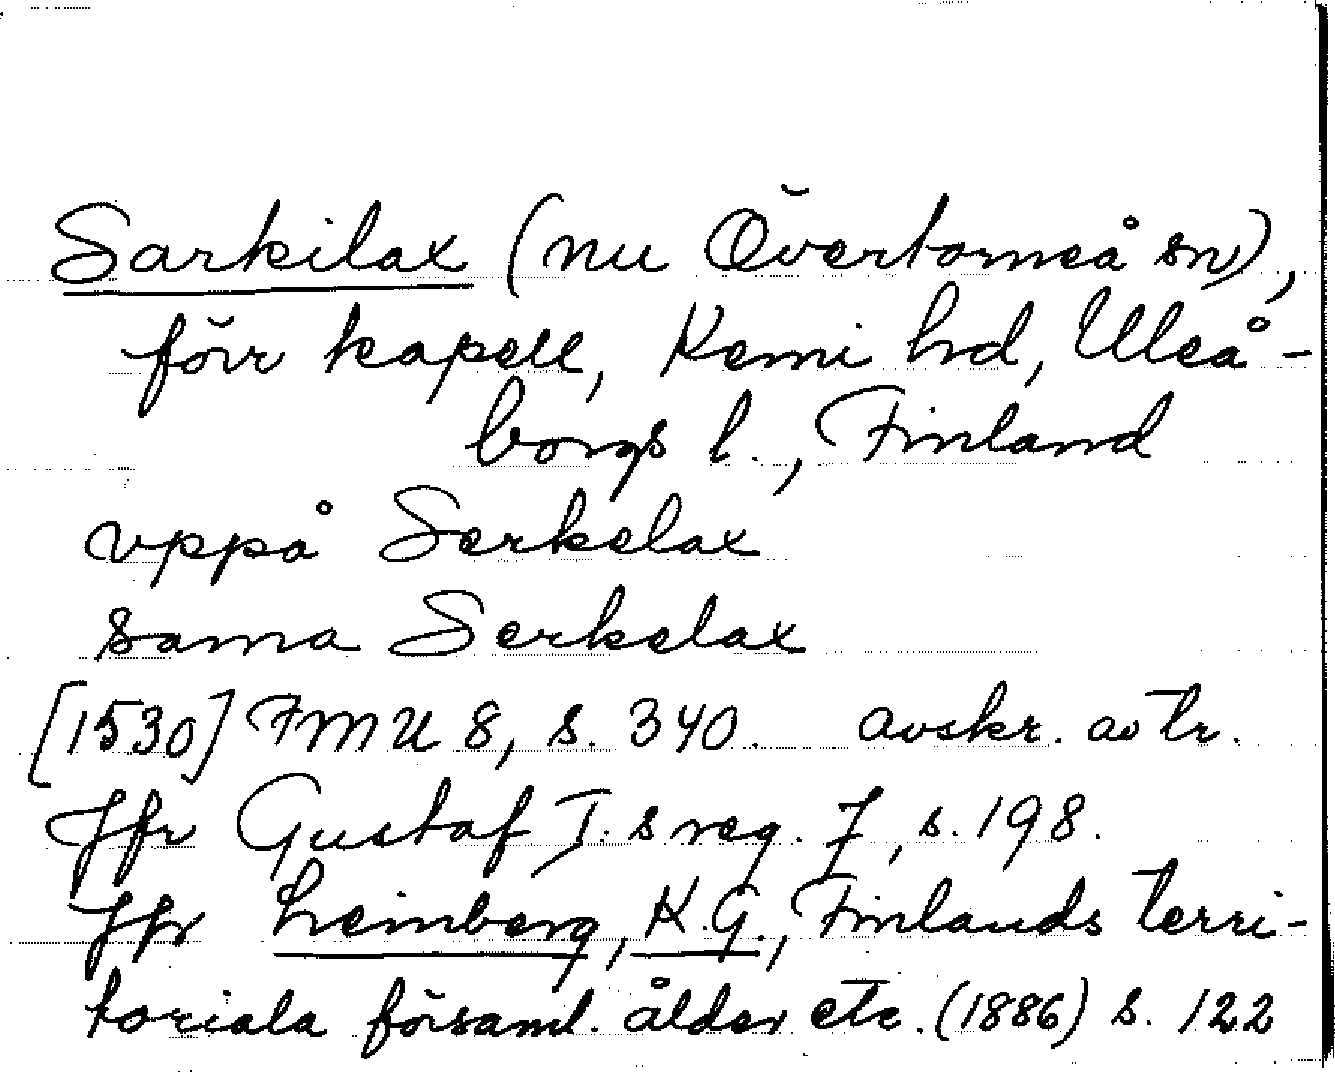 Sarkilax (nu Övertorneå sn),
förr kapell, Kemi hd, Uleå-
borgs l., Finland
vppå Serkelax
sama Serkelax
[1530] FMU 8, s. 340. avskr. av tr.
Jfr Gustaf I:s reg. 7, s. 198.
Jfr Leinberg, K.G., Finlands terri-
toriala församl. ålder etc. (1886) s. 122